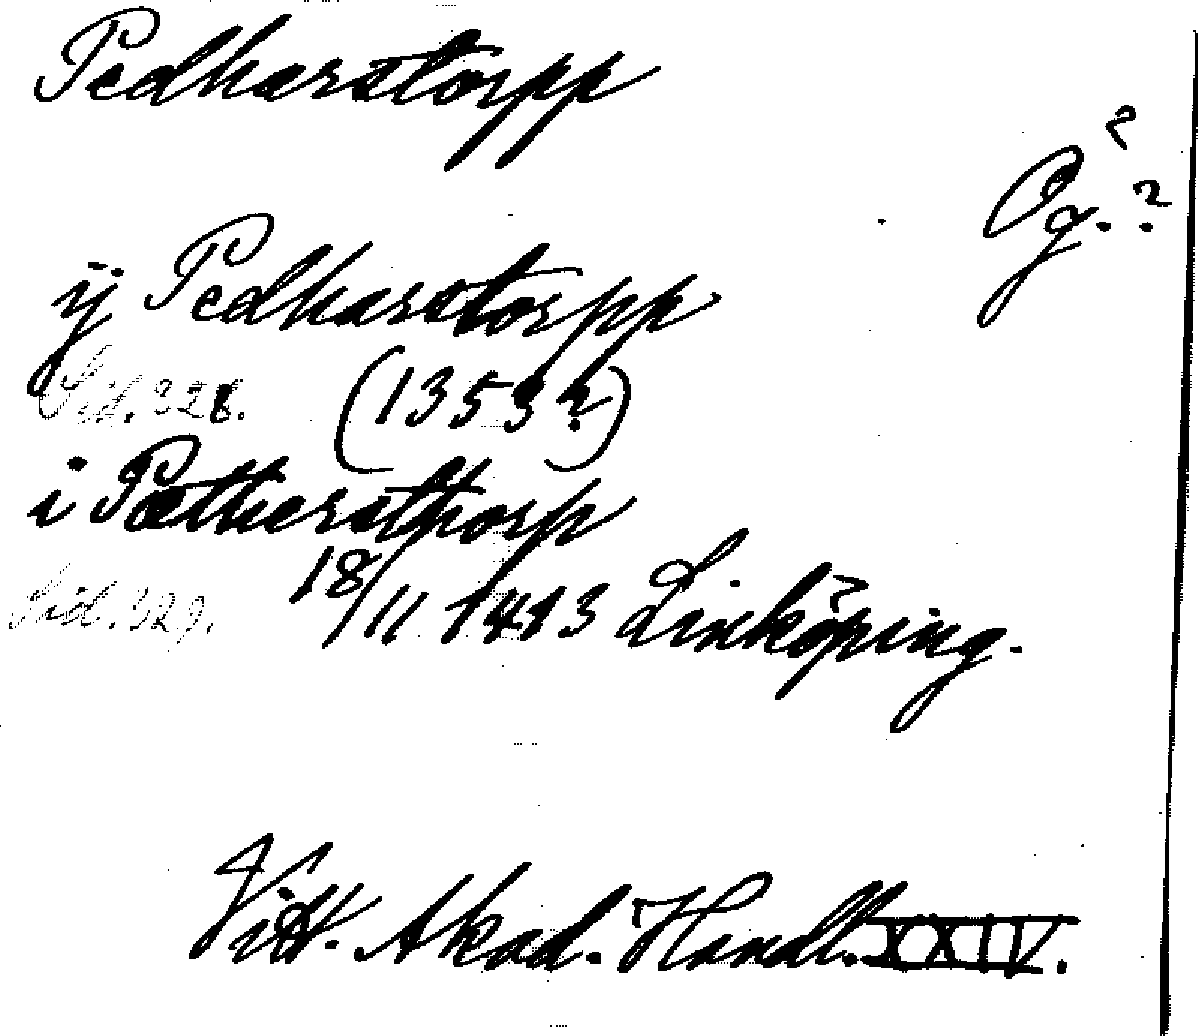 Pedharstorpp
Ög. ?
ij Pedharstorpp
Sid. 328. (1353?)
i Pæthersthorp
Sid. 329. 18/11 1413 Linköping.
Vitt. Akad. Handl. XXIV.